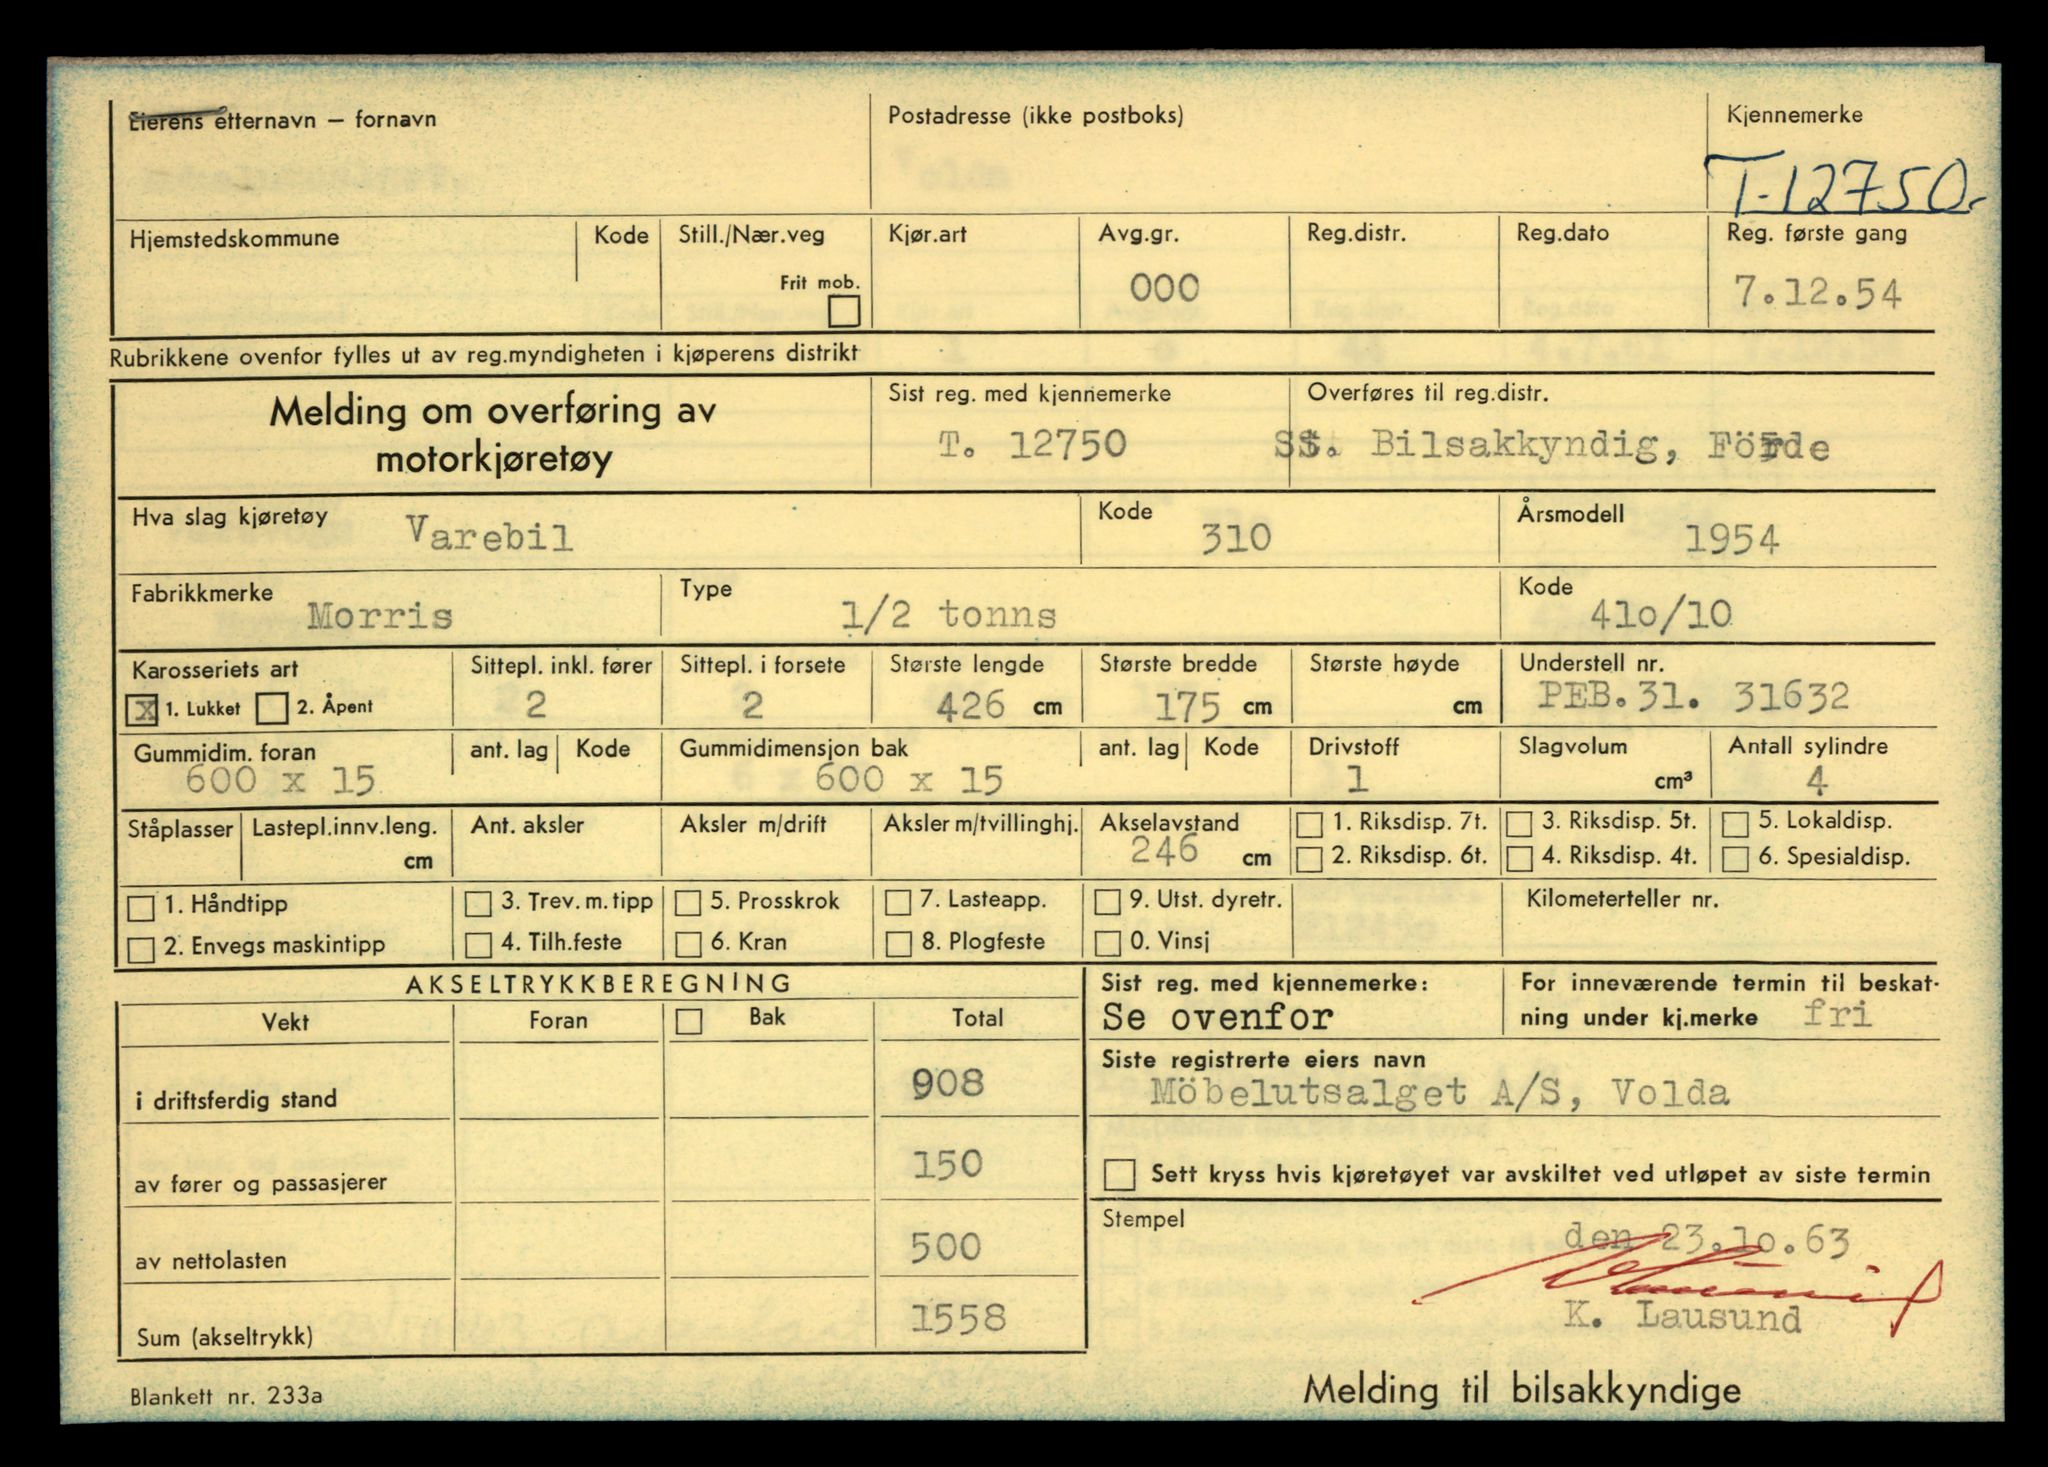 Eierens etternavn – fornavn
Postadresse (ikke postboks)
Kjennemerke
T-12750.
Hjemstedskommune
Kode
Still./Nær.veg
Frit mob.
Kjør.art
Avg.gr.
000
Reg.distr.
Reg.dato
Reg. første gang
7.12.54
Rubrikkene ovenfor fylles ut av reg.myndigheten i kjøperens distrikt
Melding om overføring av
motorkjøretøy
Sist reg. med kjennemerke
T. 12750
Overføres til reg.distr.
St. Bilsakkyndig, Förde
Hva slag kjøretøy
Varebil
Kode
310
Årsmodell
1954
Fabrikkmerke
Morris
Type
1/2 tonns
Kode
41o/10
Karosseriets art
x 1. Lukket 2. Åpent
Sittepl. inkl. fører
2
Sittepl. i forsete
2
Største lengde
426 cm
Største bredde
175 cm
Største høyde
cm
Understell nr.
PEB.31. 31632
Gummidim. foran
600 x 15
ant. lag
Kode
Gummidimensjon bak
600 x 15
ant. lag
Kode
Drivstoff
1
Slagvolum
cm³
Antall sylindre
4
Ståplasser
Lastepl.innv.leng.
cm
Ant. aksler
Aksler m/drift
Aksler m/tvillinghj.
Akselavstand
246 cm
1. Riksdisp. 7t.
2. Riksdisp. 6t.
3. Riksdisp. 5t.
4. Riksdisp. 4t.
5. Lokaldisp.
6. Spesialdisp.
1. Håndtipp
2. Envegs maskintipp
3. Trev. m. tipp
4. Tilh.feste
5. Prosskrok
6. Kran
7. Lasteapp.
8. Plogfeste
9. Utst. dyretr.
0. Vinsj
Kilometerteller nr.
AKSELTRYKKBEREGNING
Vekt
Foran
Bak
Total
i driftsferdig stand
908
av fører og passasjerer
150
av nettolasten
500
Sum (akseltrykk)
1558
Sist reg. med kjennemerke:
Se ovenfor
For inneværende termin til beskat-
ning under kj.merke fri
Siste registrerte eiers navn
Möbelutsalget A/S, Volda
Sett kryss hvis kjøretøyet var avskiltet ved utløpet av siste termin
Stempel
den 23.1o.63
K. Lausund
Blankett nr. 233a
Melding til bilsakkyndige